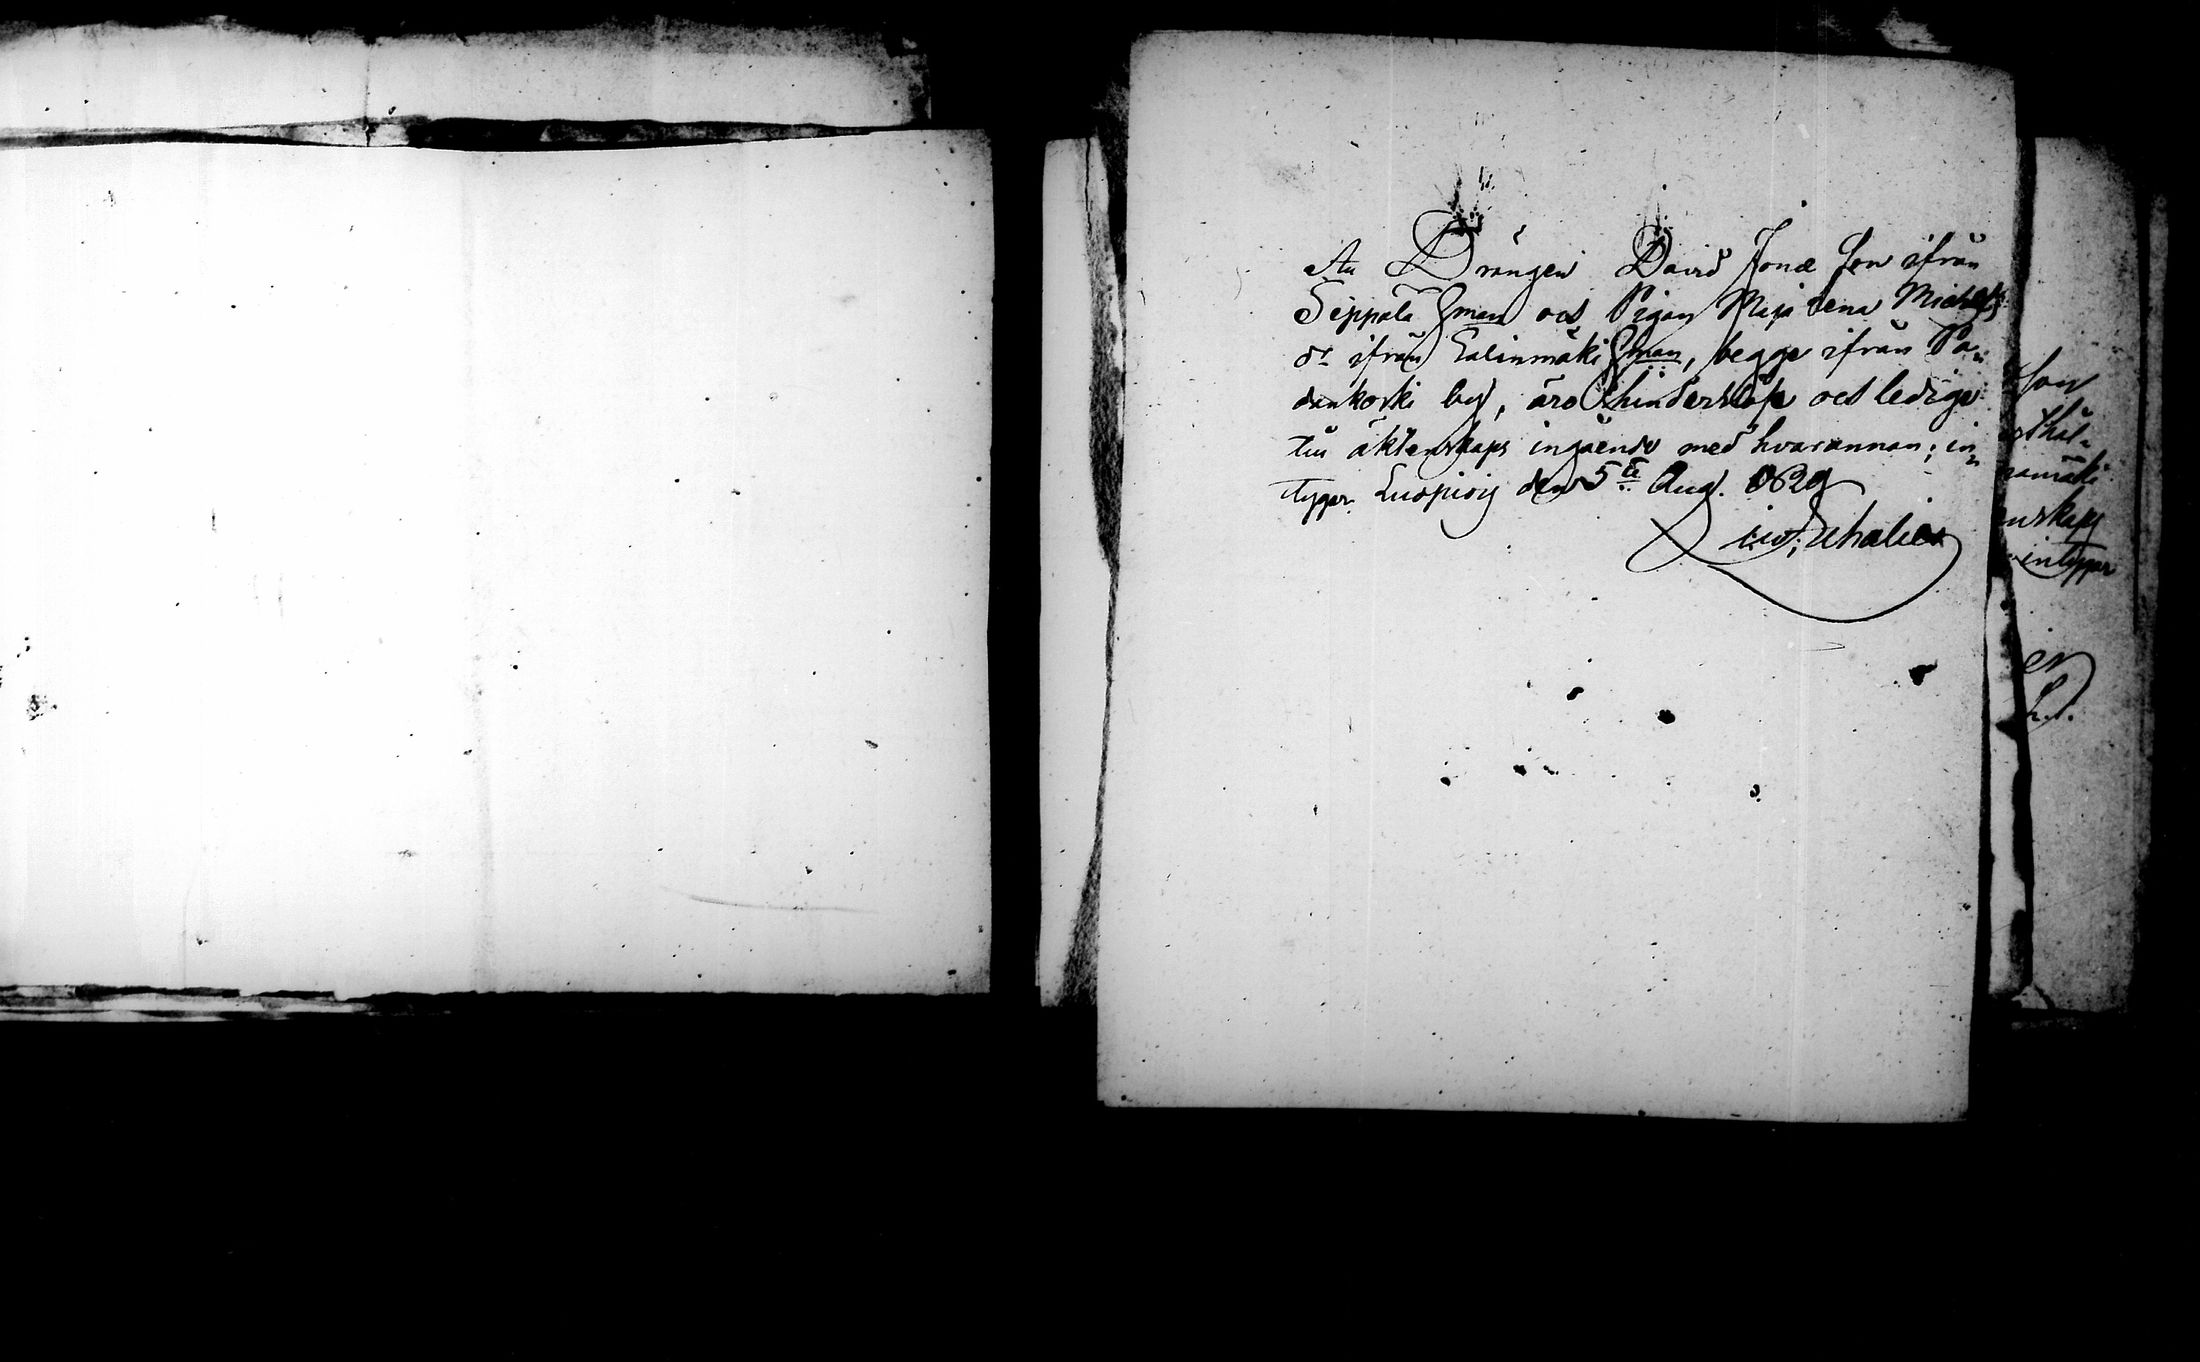 At Drängen David Jonæ Son ifrån
Seppälä Hman och Pigan Maja Lena Michels
dr ifrån Salinmäki Hman, begge ifrån Pa-
dankoski by, äro hinderslöse och ledige
till äktenskaps ingående med hvarannan; in-
tygar Luopiois den 5te Aug. 1829
Son
thål-
ramäki
nskaps
intygar
er